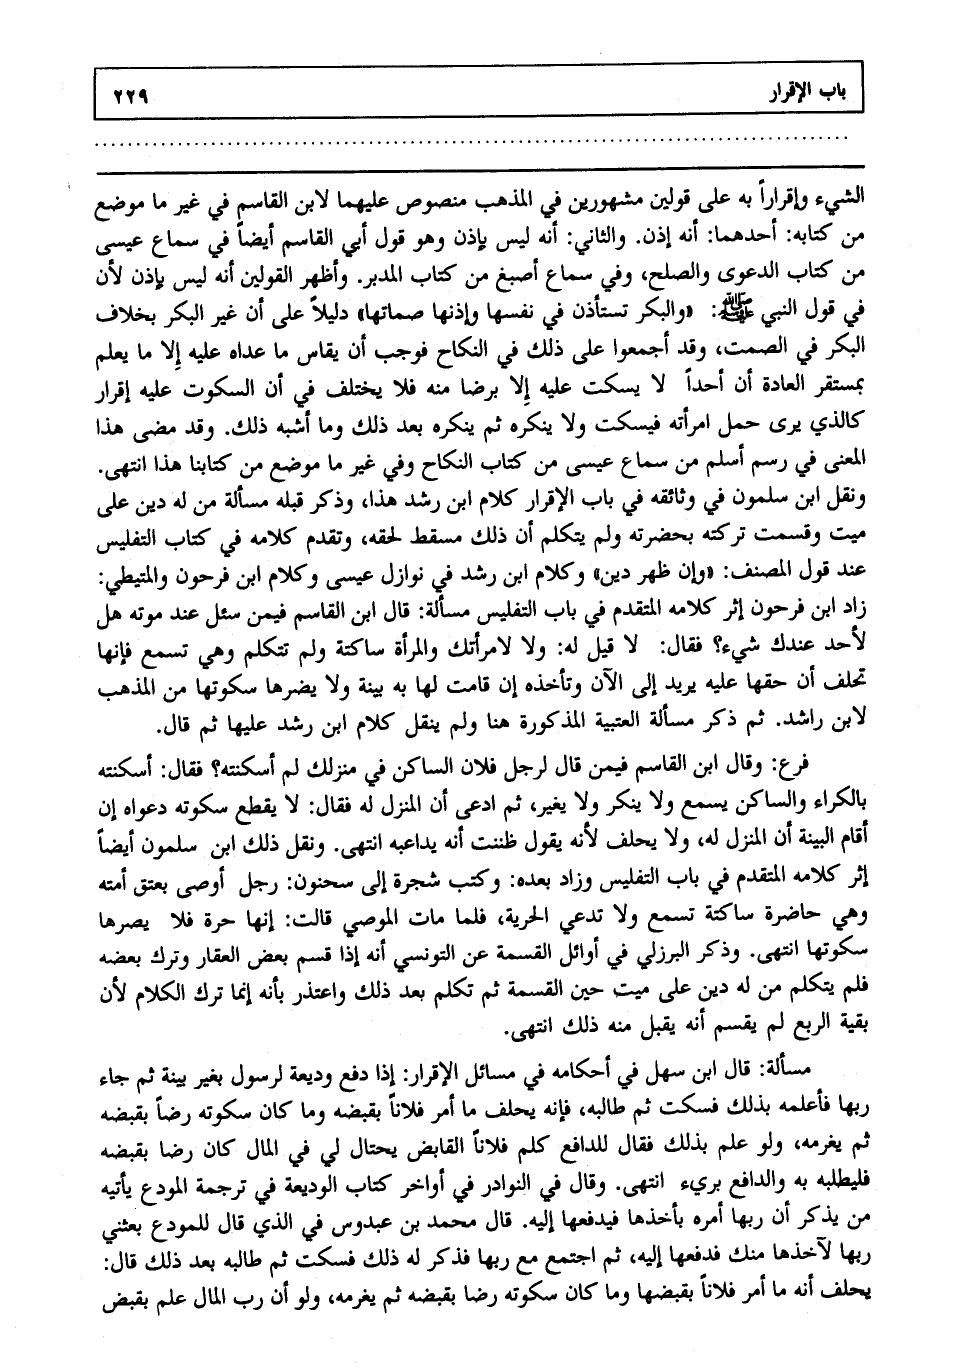 باب الإقرار ٢٢٩
الشيء وإقراراً به على قولين مشهورين في المذهب منصوص عليهما لابن القاسم في غير ما موضع
من كتابه: أحدهما: أنه إذن. والثاني: أنه ليس بإذن وهو قول أبي القاسم أيضاً في سماع عيسى
من كتاب الدعوى والصلح، وفي سماع أصبغ من كتاب المدبر. وأظهر القولين أنه ليس بإذن لأن
في قول النبي ﷺ: «والبكر تستأذن في نفسها وإذنها صماتها» دليلاً على أن غير البكر بخلاف
البكر في الصمت، وقد أجمعوا على ذلك في النكاح فوجب أن يقاس ما عداه عليه إلا ما يعلم
بمستقر العادة أن أحداً لا يسكت عليه إلا برضا منه فلا يختلف في أن السكوت عليه إقرار
كالذي يرى حمل امرأته فيسكت ولا ينكره ثم ينكره بعد ذلك وما أشبه ذلك. وقد مضى هذا
المعنى في رسم أسلم من سماع عيسى من كتاب النكاح وفي غير ما موضع من كتابنا هذا انتهى.
ونقل ابن سلمون في وثائقه في باب الإقرار كلام ابن رشد هذا، وذكر قبله مسألة من له دين على
ميت وقسمت تركته بحضرته ولم يتكلم أن ذلك مسقط لحقه، وتقدم كلامه في كتاب التفليس
عند قول المصنف: «وإن ظهر دين» وكلام ابن رشد في نوازل عيسى وكلام ابن فرحون والمتيطي:
زاد ابن فرحون إثر كلامه المتقدم في باب التفليس مسألة: قال ابن القاسم فيمن سئل عند موته هل
لأحد عندك شيء؟ فقال: لا قيل له: ولا لامرأتك والمرأة ساكتة ولم تتكلم وهي تسمع فإنها
تحلف أن حقها عليه يريد إلى الآن وتأخذه إن قامت لها به بينة ولا يضرها سكوتها من المذهب
لابن راشد. ثم ذكر مسألة العتبية المذكورة هنا ولم ينقل كلام ابن رشد عليها ثم قال.
فرع: وقال ابن القاسم فيمن قال لرجل فلان الساكن في منزلك لم أسكنته؟ فقال: أسكنته
بالكراء والساكن يسمع ولا ينكر ولا يغير، ثم ادعى أن المنزل له فقال: لا يقطع سكوته دعواه إن
أقام البينة أن المنزل له، ولا يحلف لأنه يقول ظننت أنه يداعبه انتهى. ونقل ذلك ابن سلمون أيضاً
إثر كلامه المتقدم في باب التفليس وزاد بعده: وكتب شجرة إلى سحنون: رجل أوصى بعتق أمته
وهي حاضرة ساكتة تسمع ولا تدعي الحرية، فلما مات الموصي قالت: إنها حرة فلا يصرها
سكوتها انتهى. وذكر البرزلي في أوائل القسمة عن التونسي أنه إذا قسم بعض العقار وترك بعضه
فلم يتكلم من له دين على ميت حين القسمة ثم تكلم بعد ذلك واعتذر بأنه إنما ترك الكلام لأن
بقية الربع لم يقسم أنه يقبل منه ذلك انتهى.
مسألة: قال ابن سهل في أحكامه في مسائل الإقرار: إذا دفع وديعة لرسول بغير بينة ثم جاء
ربها فأعلمه بذلك فسكت ثم طالبه، فإنه يحلف ما أمر فلاناً بقبضه وما كان سكوته رضاً بقبضه
ثم يغرمه، ولو علم بذلك فقال للدافع كلم فلاناً القابض يحتال لي في المال كان رضا بقبضه
فليطلبه به والدافع بريء انتهى. وقال في النوادر في أواخر كتاب الوديعة في ترجمة المودع يأتيه
من يذكر أن ربها أمره بأخذها فيدفعها إليه. قال محمد بن عبدوس في الذي قال للمودع بعثني
ربها لآخذها منك فدفعها إليه، ثم اجتمع مع ربها فذكر له ذلك فسكت ثم طالبه بعد ذلك قال:
يحلف أنه ما أمر فلاناً بقبضها وما كان سكوته رضا بقبضه ثم يغرمه، ولو أن رب المال علم بقبض